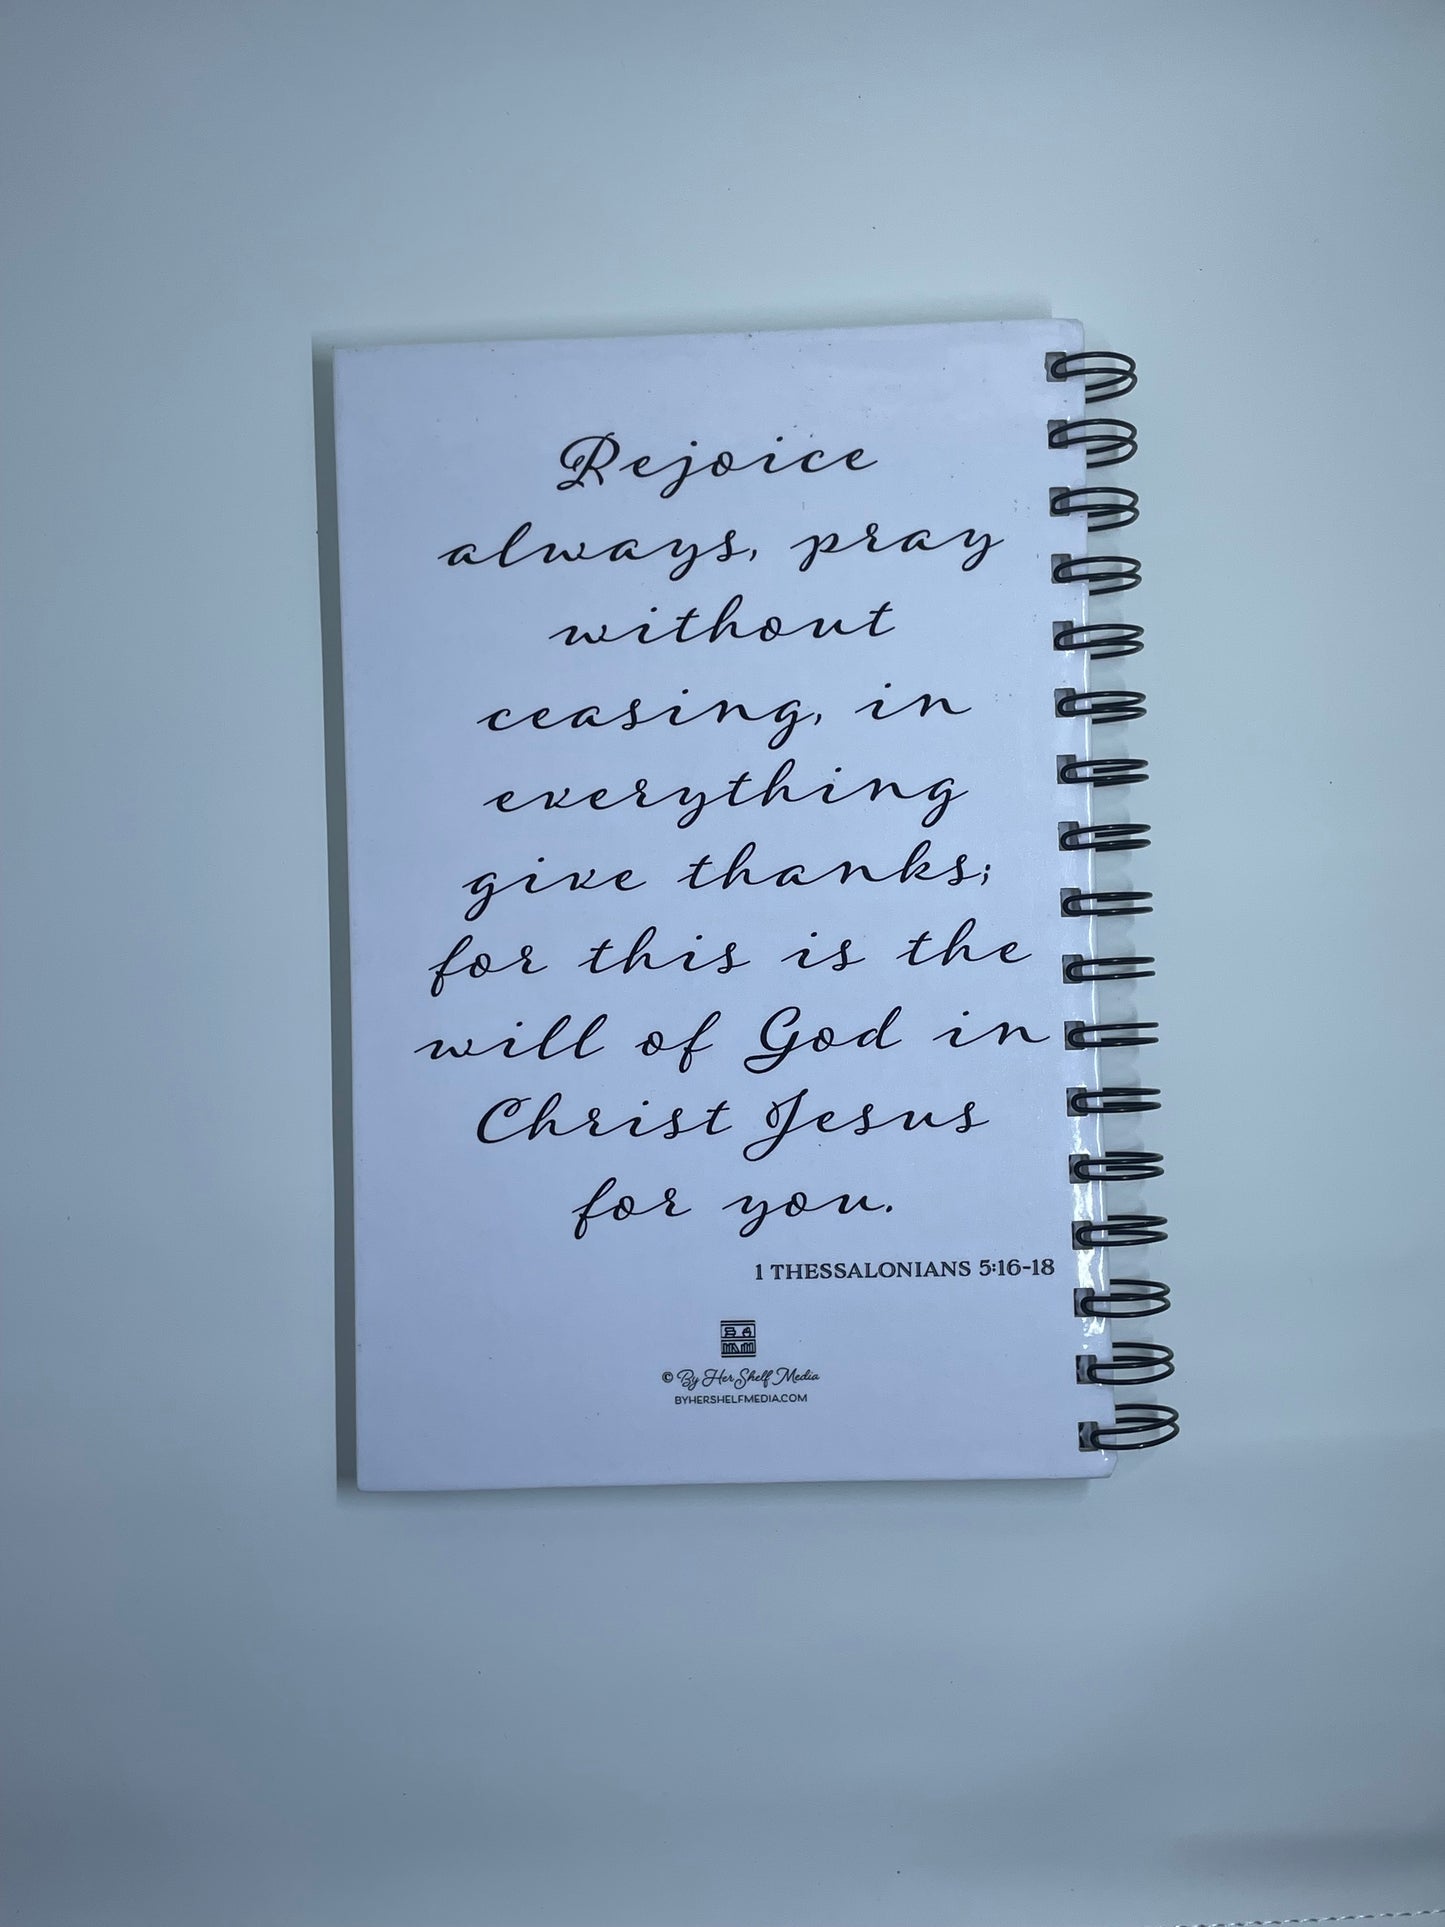 Rejoice
always, pray
without
ceasing, in
everything
give thanks;
for this is the
will of God in
Christ Jesus
for you.
1 THESSALONIANS 5:16-18
© By Her Shelf Media
BYHERSHELFMEDIA.COM